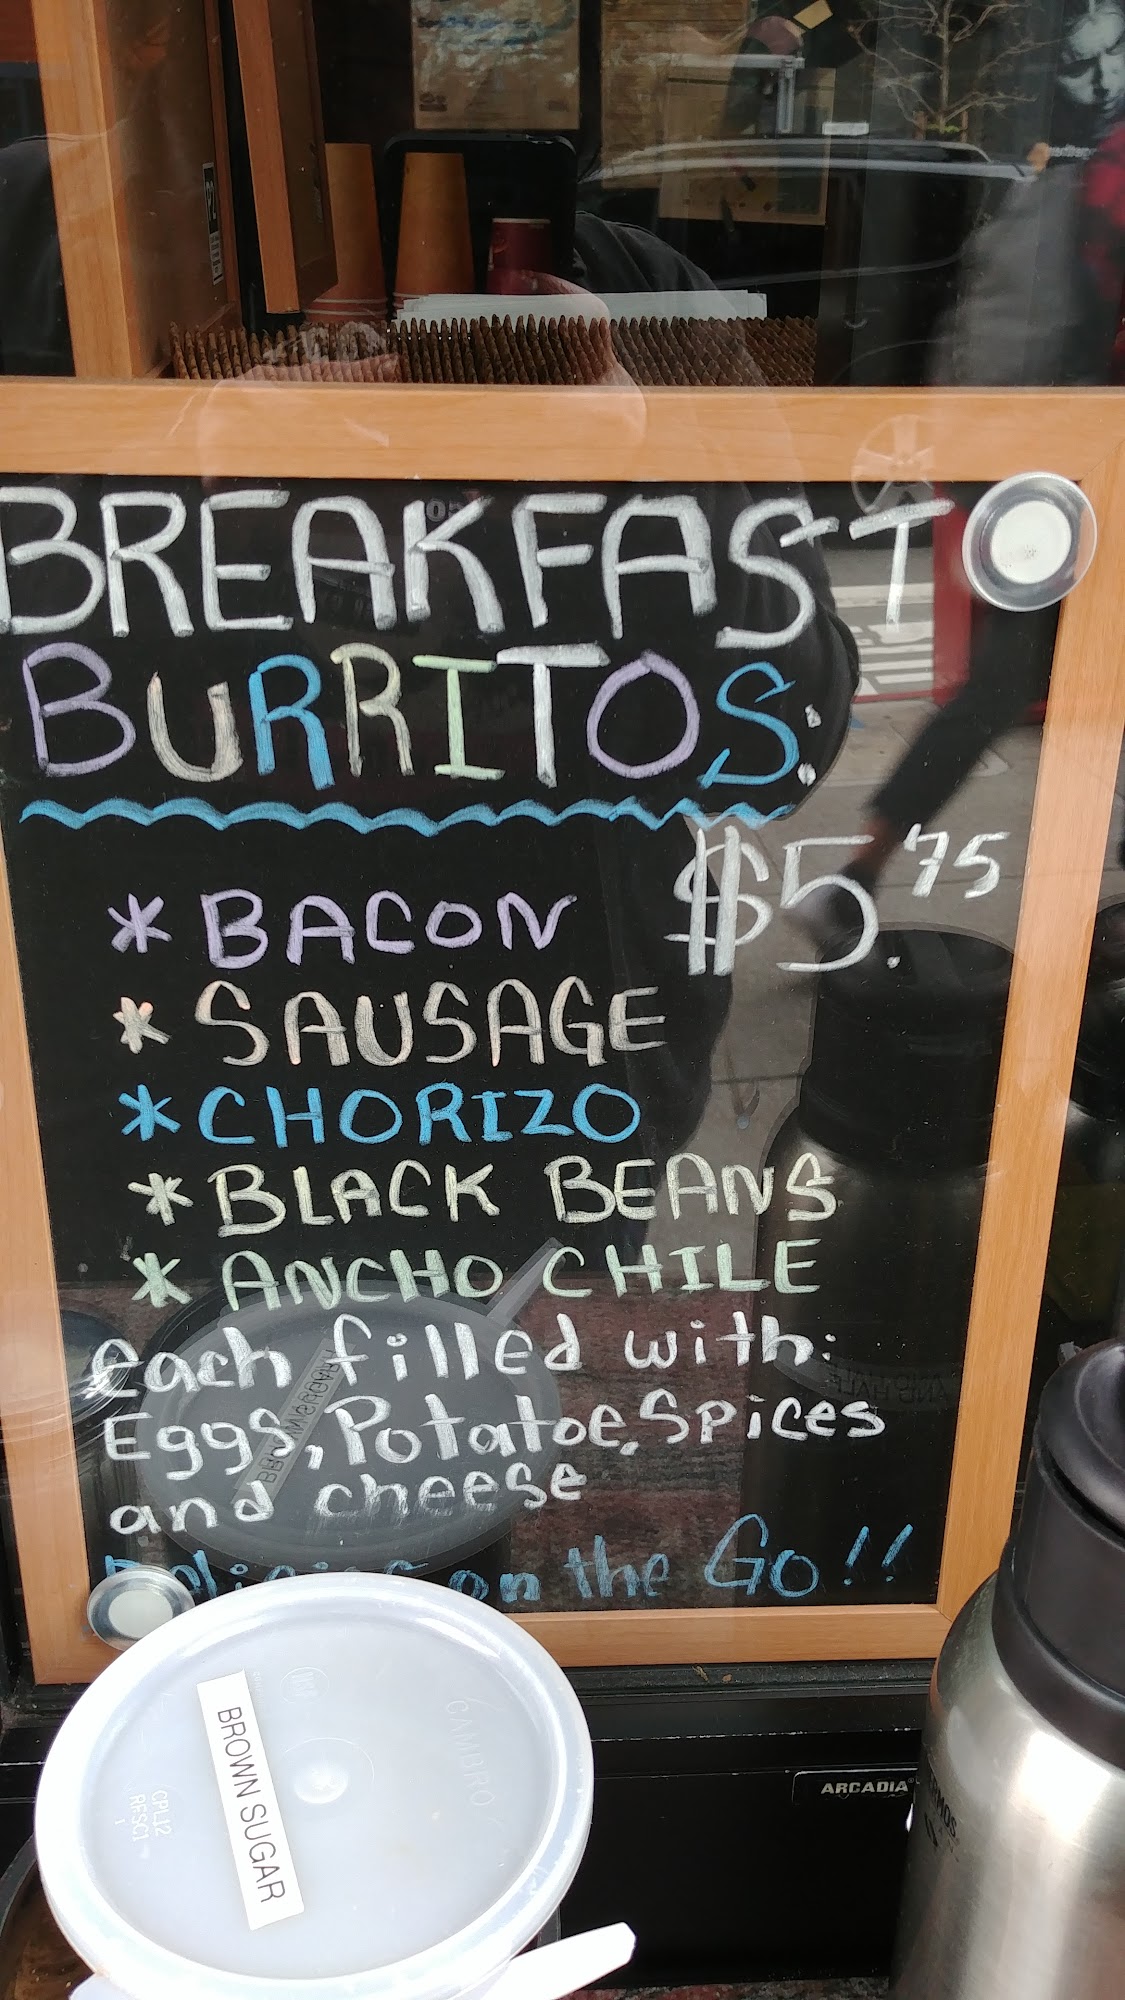 BREAKFAST
BURRITOS:
$5.75
* BACON
* SAUSAGE
* CHORIZO
* BLACK BEANS
* ANCHO CHILE
Each filled with:
Eggs, Potatoe, Spices
and cheese
on the Go!!
BROWN SUGAR
CAMBRO
CPL12
RFSC1
1
ARCADIA